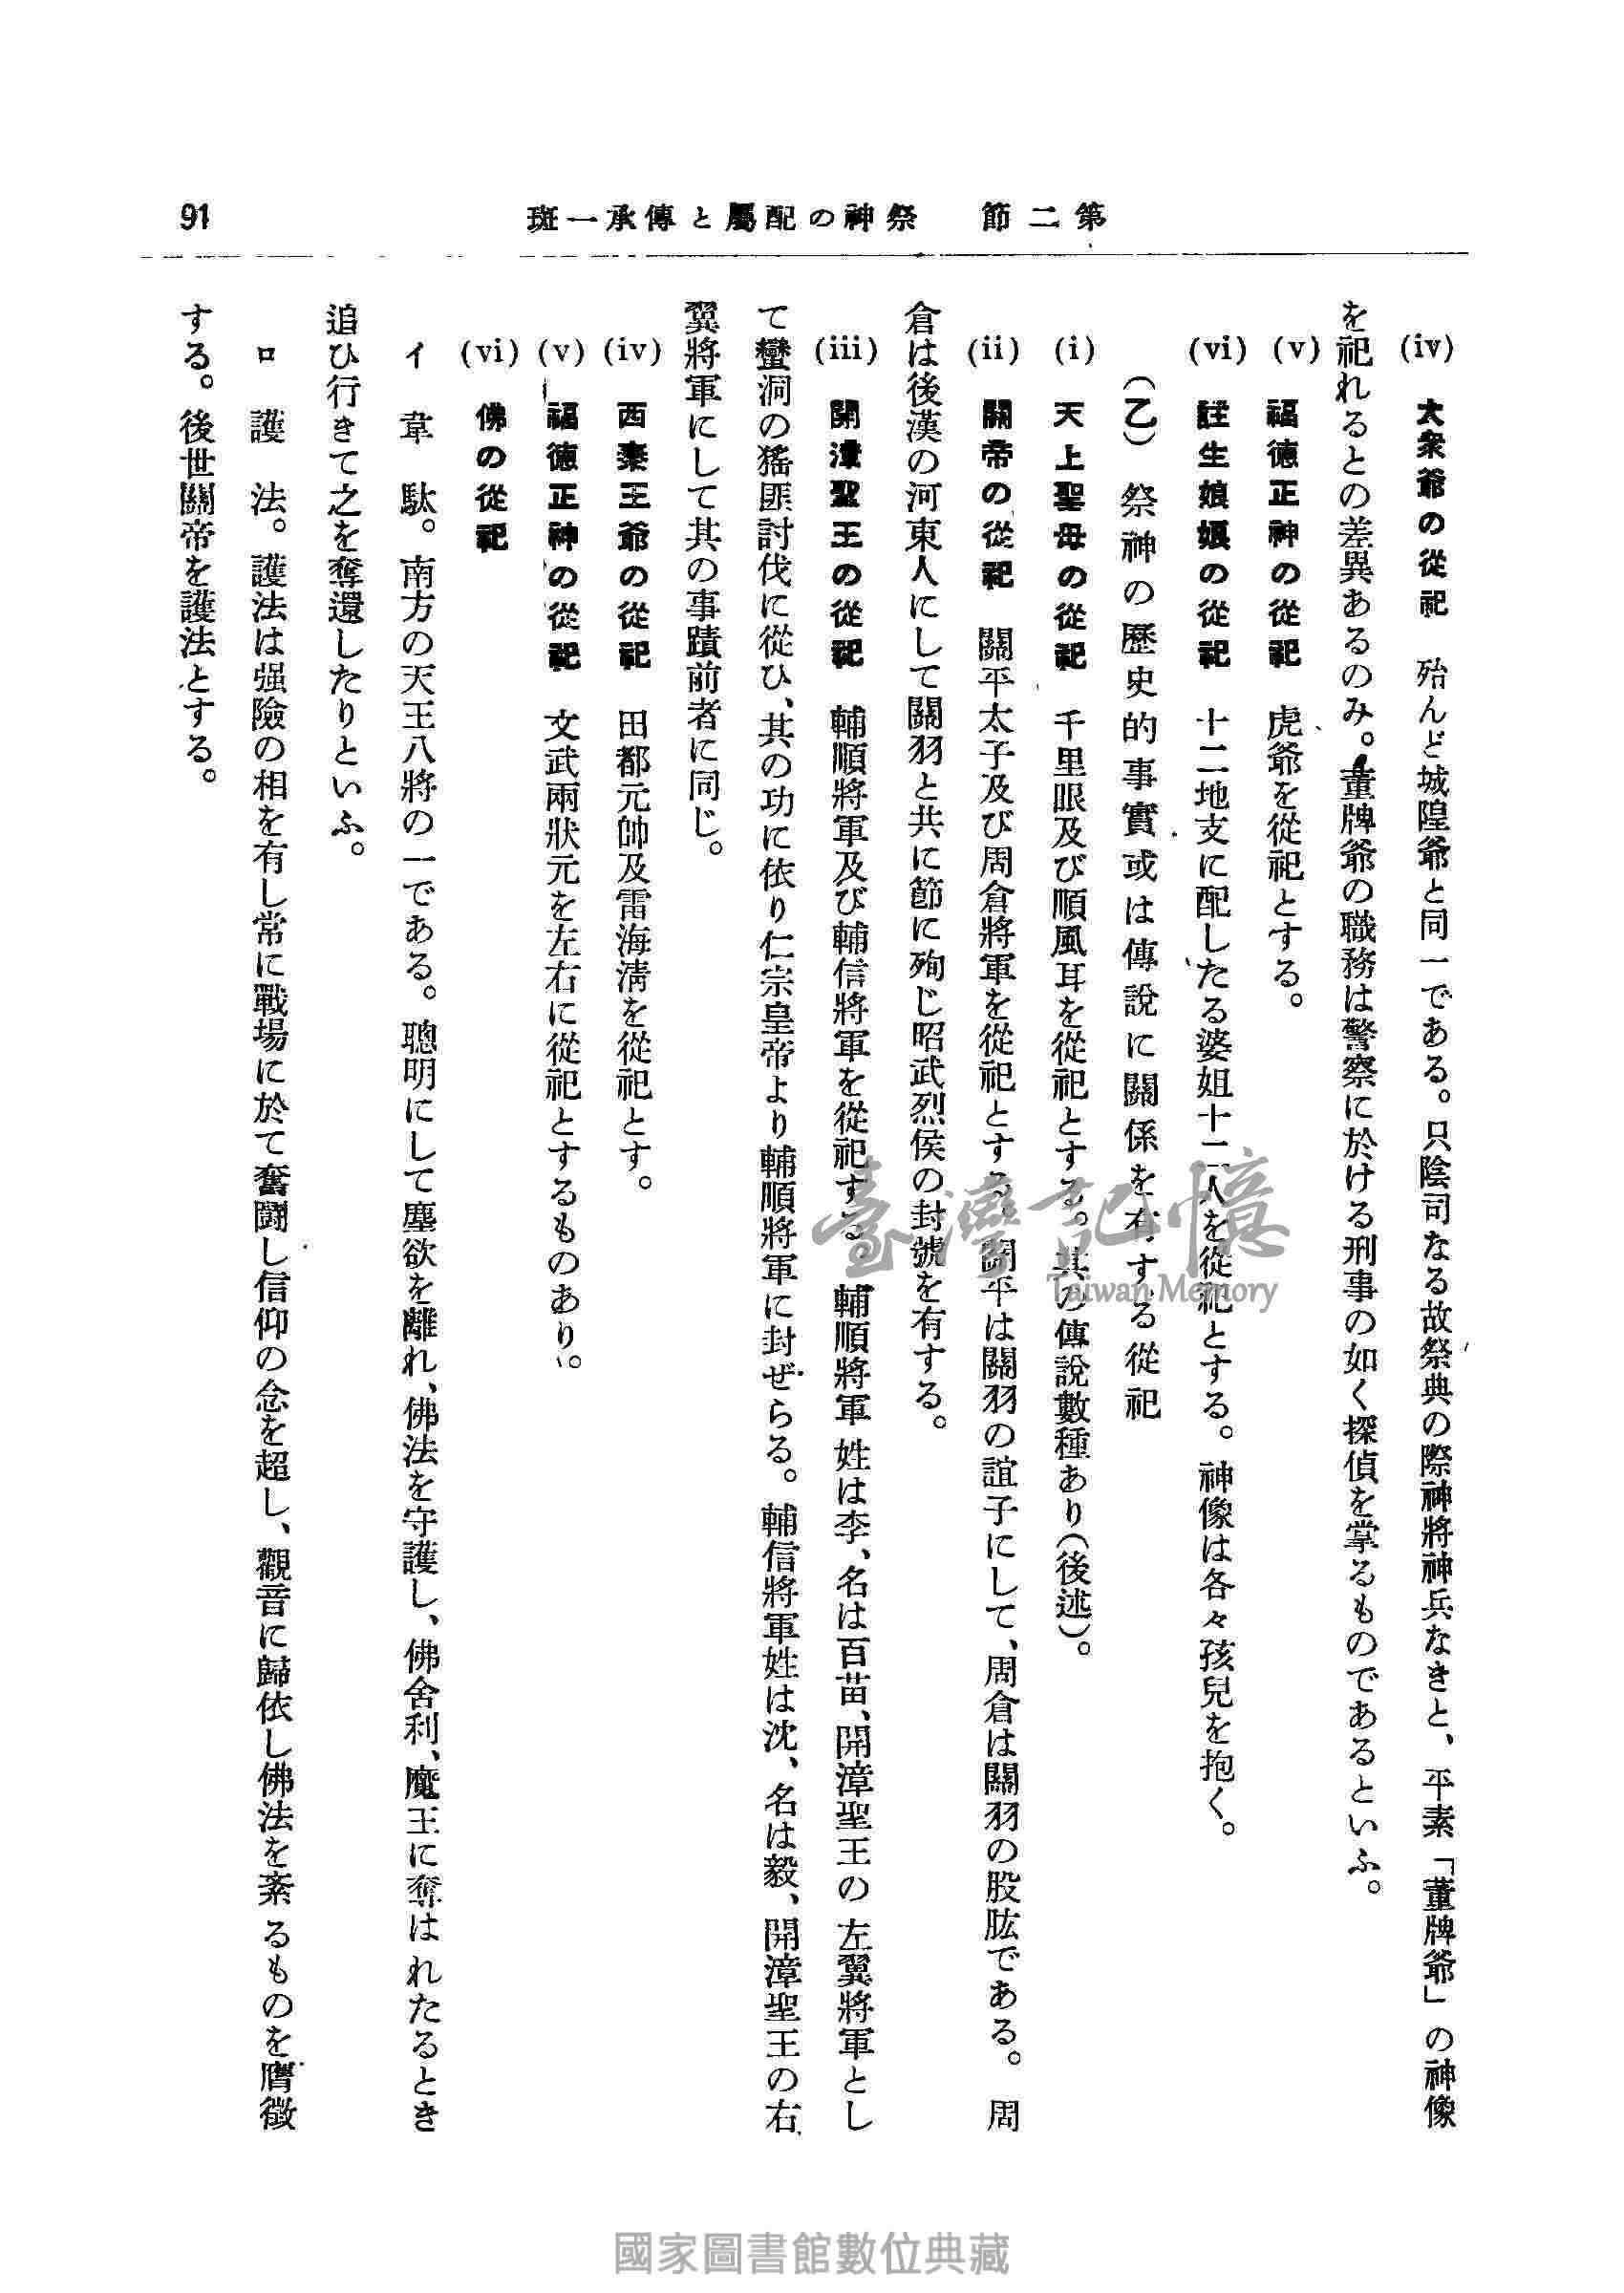 第二節　祭神の配屬と傳承一斑
91
(iv)　大衆爺の從祀　殆んど城隍爺と同一である。只陰司なる故祭典の際神將神兵なきと、平素「董牌爺」の神像
を祀れるとの差異あるのみ。董牌爺の職務は警察に於ける刑事の如く探偵を掌るものであるといふ。
(v)　福德正神の從祀　虎爺を從祀とする。
(vi)　註生娘娘の從祀　十二地支に配したる婆姐十二人を從祀とする。神像は各々孩兒を抱く。
(乙)　祭神の歷史的事實或は傳說に關係を有する從祀
(i)　天上聖母の從祀　千里眼及び順風耳を從祀とする。其の傳說數種あり(後述)。
(ii)　關帝の從祀　關平太子及び周倉將軍を從祀とする。關平は關羽の誼子にして、周倉は關羽の股肱である。周
倉は後漢の河東人にして關羽と共に節に殉じ昭武烈侯の封號を有する。
(iii)　開漳聖王の從祀　輔順將軍及び輔信將軍を從祀する。輔順將軍姓は李、名は百苗、開漳聖王の左翼將軍とし
て蠻洞の猺匪討伐に從ひ、其の功に依り仁宗皇帝より輔順將軍に封ぜらる。輔信將軍姓は沈、名は毅、開漳聖王の右
翼將軍にして其の事蹟前者に同じ。
(iv)　西秦王爺の從祀　田都元帥及雷海淸を從祀とす。
(v)　福德正神の從祀　文武兩狀元を左右に從祀とするものあり。
(vi)　佛の從祀
イ　韋　馱。南方の天王八將の一である。聰明にして塵欲を離れ、佛法を守護し、佛舍利、魔王に奪はれたるとき
追ひ行きて之を奪還したりといふ。
ロ　護　法。護法は强險の相を有し常に戰場に於て奮鬪し信仰の念を超し、觀音に歸依し佛法を紊るものを膺徵
する。後世關帝を護法とする。
臺灣記憶
Taiwan Memory
國家圖書館數位典藏